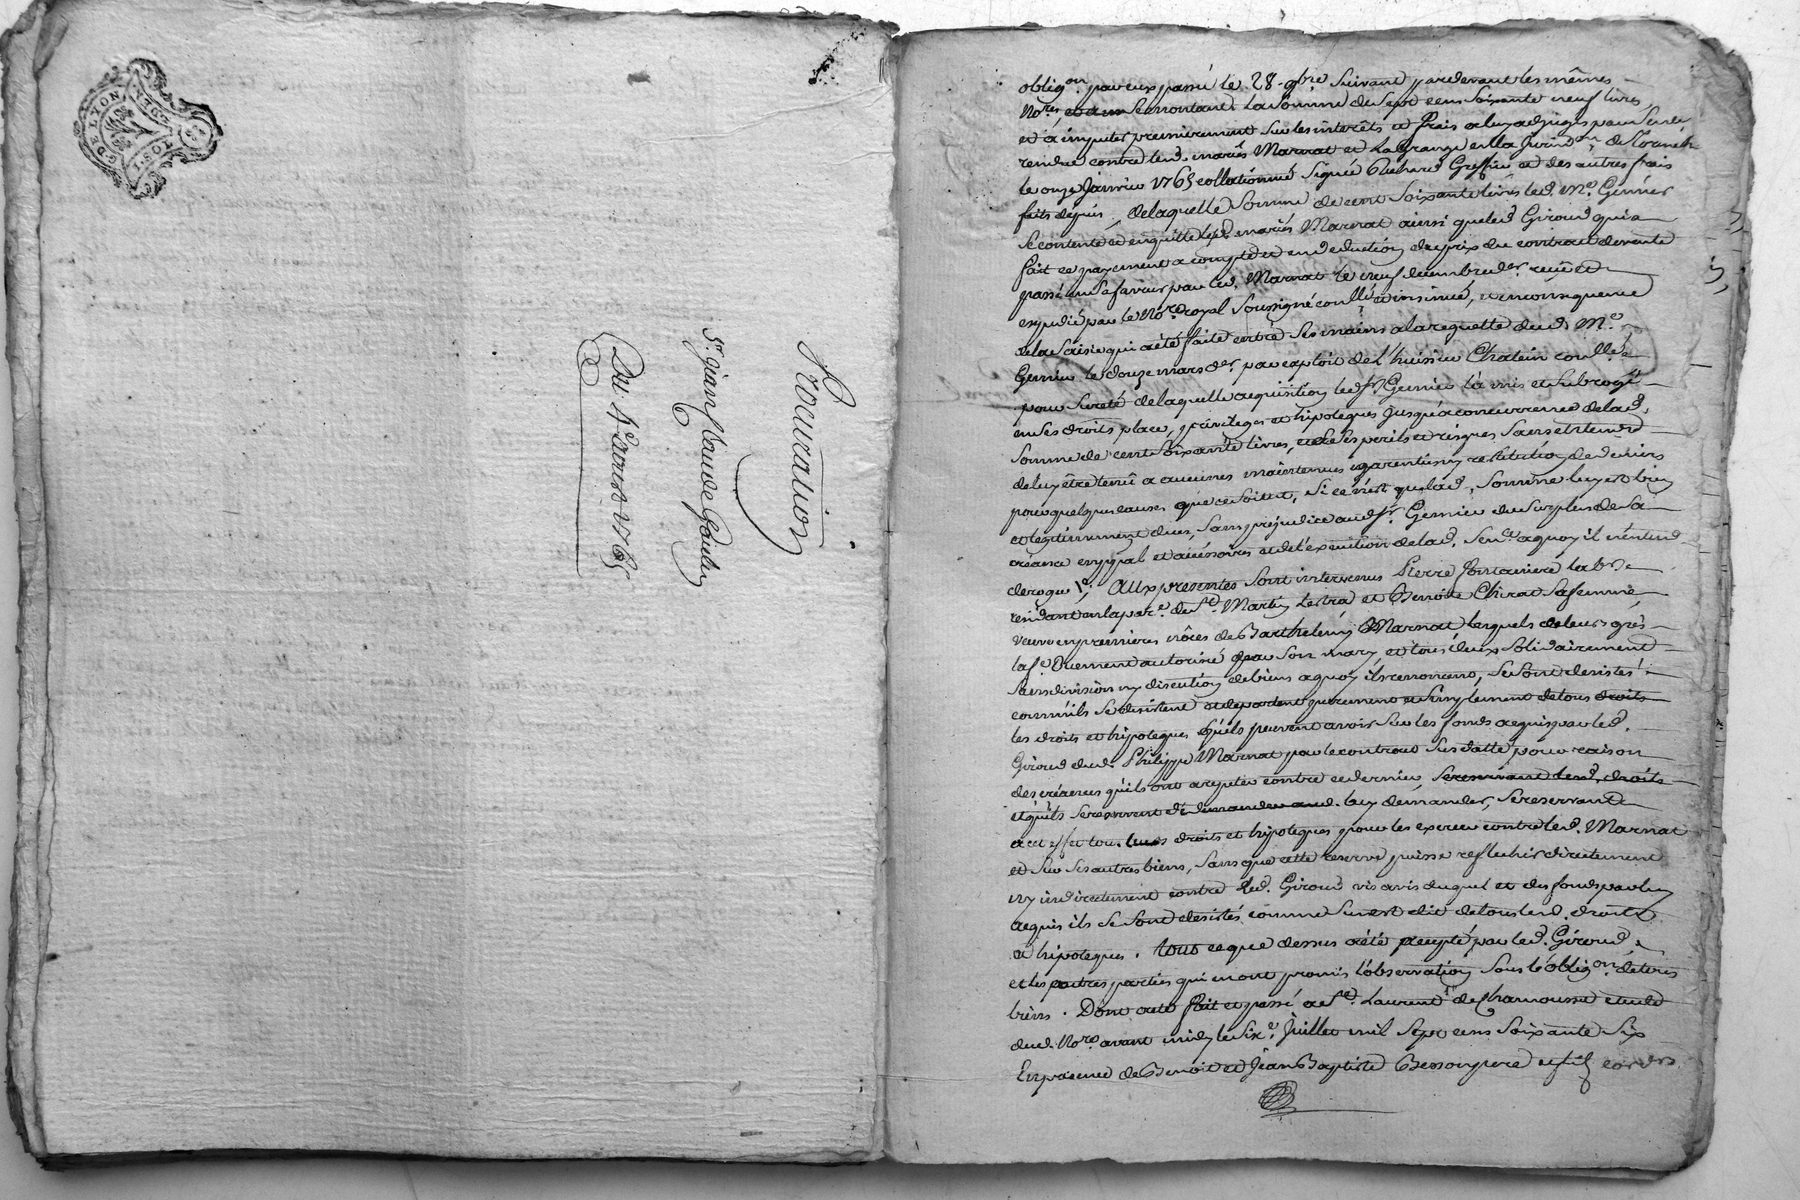 G. DE LYON
Procuration
Sr. Jean Claude
Du 4e. aoust 1765
oblign. par eux passé le 28. 9bre suivant pardevant les mêmes
Nores. se montant la somme de sept cens soixante neuf livres
et à imputer premièrement sur les interêts et frais
rendue contre lesd. mariés Marnat et Lagrange en la
le onze Janvier 1765 collationné signée Greffier et des autres frais
faits depuis, de laquelle somme de cent soixante livres led. Me. Gernier
se contente et en quitte lesd. mariés Marnat ainsi que led. Giroud qui a
fait ce payement a compte et en deduction du prix du contrat de vente
passé en sa faveur par led. Marnat le neuf decembre der. receu et
expedié par le Nore. royal soussigné coullé et insinué, et en consequence
de la saisie qui a été faite entre ses mains a la requette dud. Me.
Gernier le douze mars der. par exploit de l'huissier Chatein coullé
pour sureté de laquelle acquisition led. sr. Gernier l'a mis et subrogé
en ses droits place, privileges et hipoteques jusqu'a concurrence de lad.
somme de cent soixante livres, et de ses perils et risques sans entendre
de luy être tenu a aucunes maintenues garenties ny restitution de deniers
pour quelque cause que ce soit, si ce n'est que lad. somme luy est bien
et legitimement due, sans prejudice aud. sr. Gernier du surplus de sa
creance en ppal et accéssoires et de l'execution de lad. sence. a quoy il n'entend
deroger. Aux presentes sont intervenus Pierre fontanière labr.
residant en la parse. de St. Martin Lestra et Benoite Chirat sa femme
veuve en premieres nôces de Barthelemy Marnat lesquels de leurs grés
la fe. duement autorisé par son mary et tous deux solidairement
sans division ny discution de biens a quoy ils renoncent, se sont desistés
comm'ils se desistent et departent purement et simplement de tous droits
les droits et hipoteques qu'ils peuvent avoir sur les fonds acquis par led.
Giroud dud. Philippe Marnat par le contrat susdatté pour raison
des créances qu'ils ont a repeter contre ce dernier, se reservant lesd. droits
et qu'ils se reservent de demander aud. luy demander, se reservant
a cet effet tous leurs droits et hipoteques pour les exercer contre led. Marnat
et sur ses autres biens, sans que cette reserve puisse reflechir directement
ny indirectement contre led. Giroud vis avis duquel et des fonds par luy
acquis ils se sont desistés comme sus est dit de tous lesd. droits
et hipoteques. tout ce que dessus a été accepté par led. Giroud
et les autres parties qui en ont promis l'observation sous l'oblign. de leurs
biens. Dont acte fait et passé a St. Laurent de Chamousset etude
dud. Nore. avant midy le sixe. Juillet mil sept cens soixante six
En presence de Benoit et Jean Baptiste Besson pere et fils